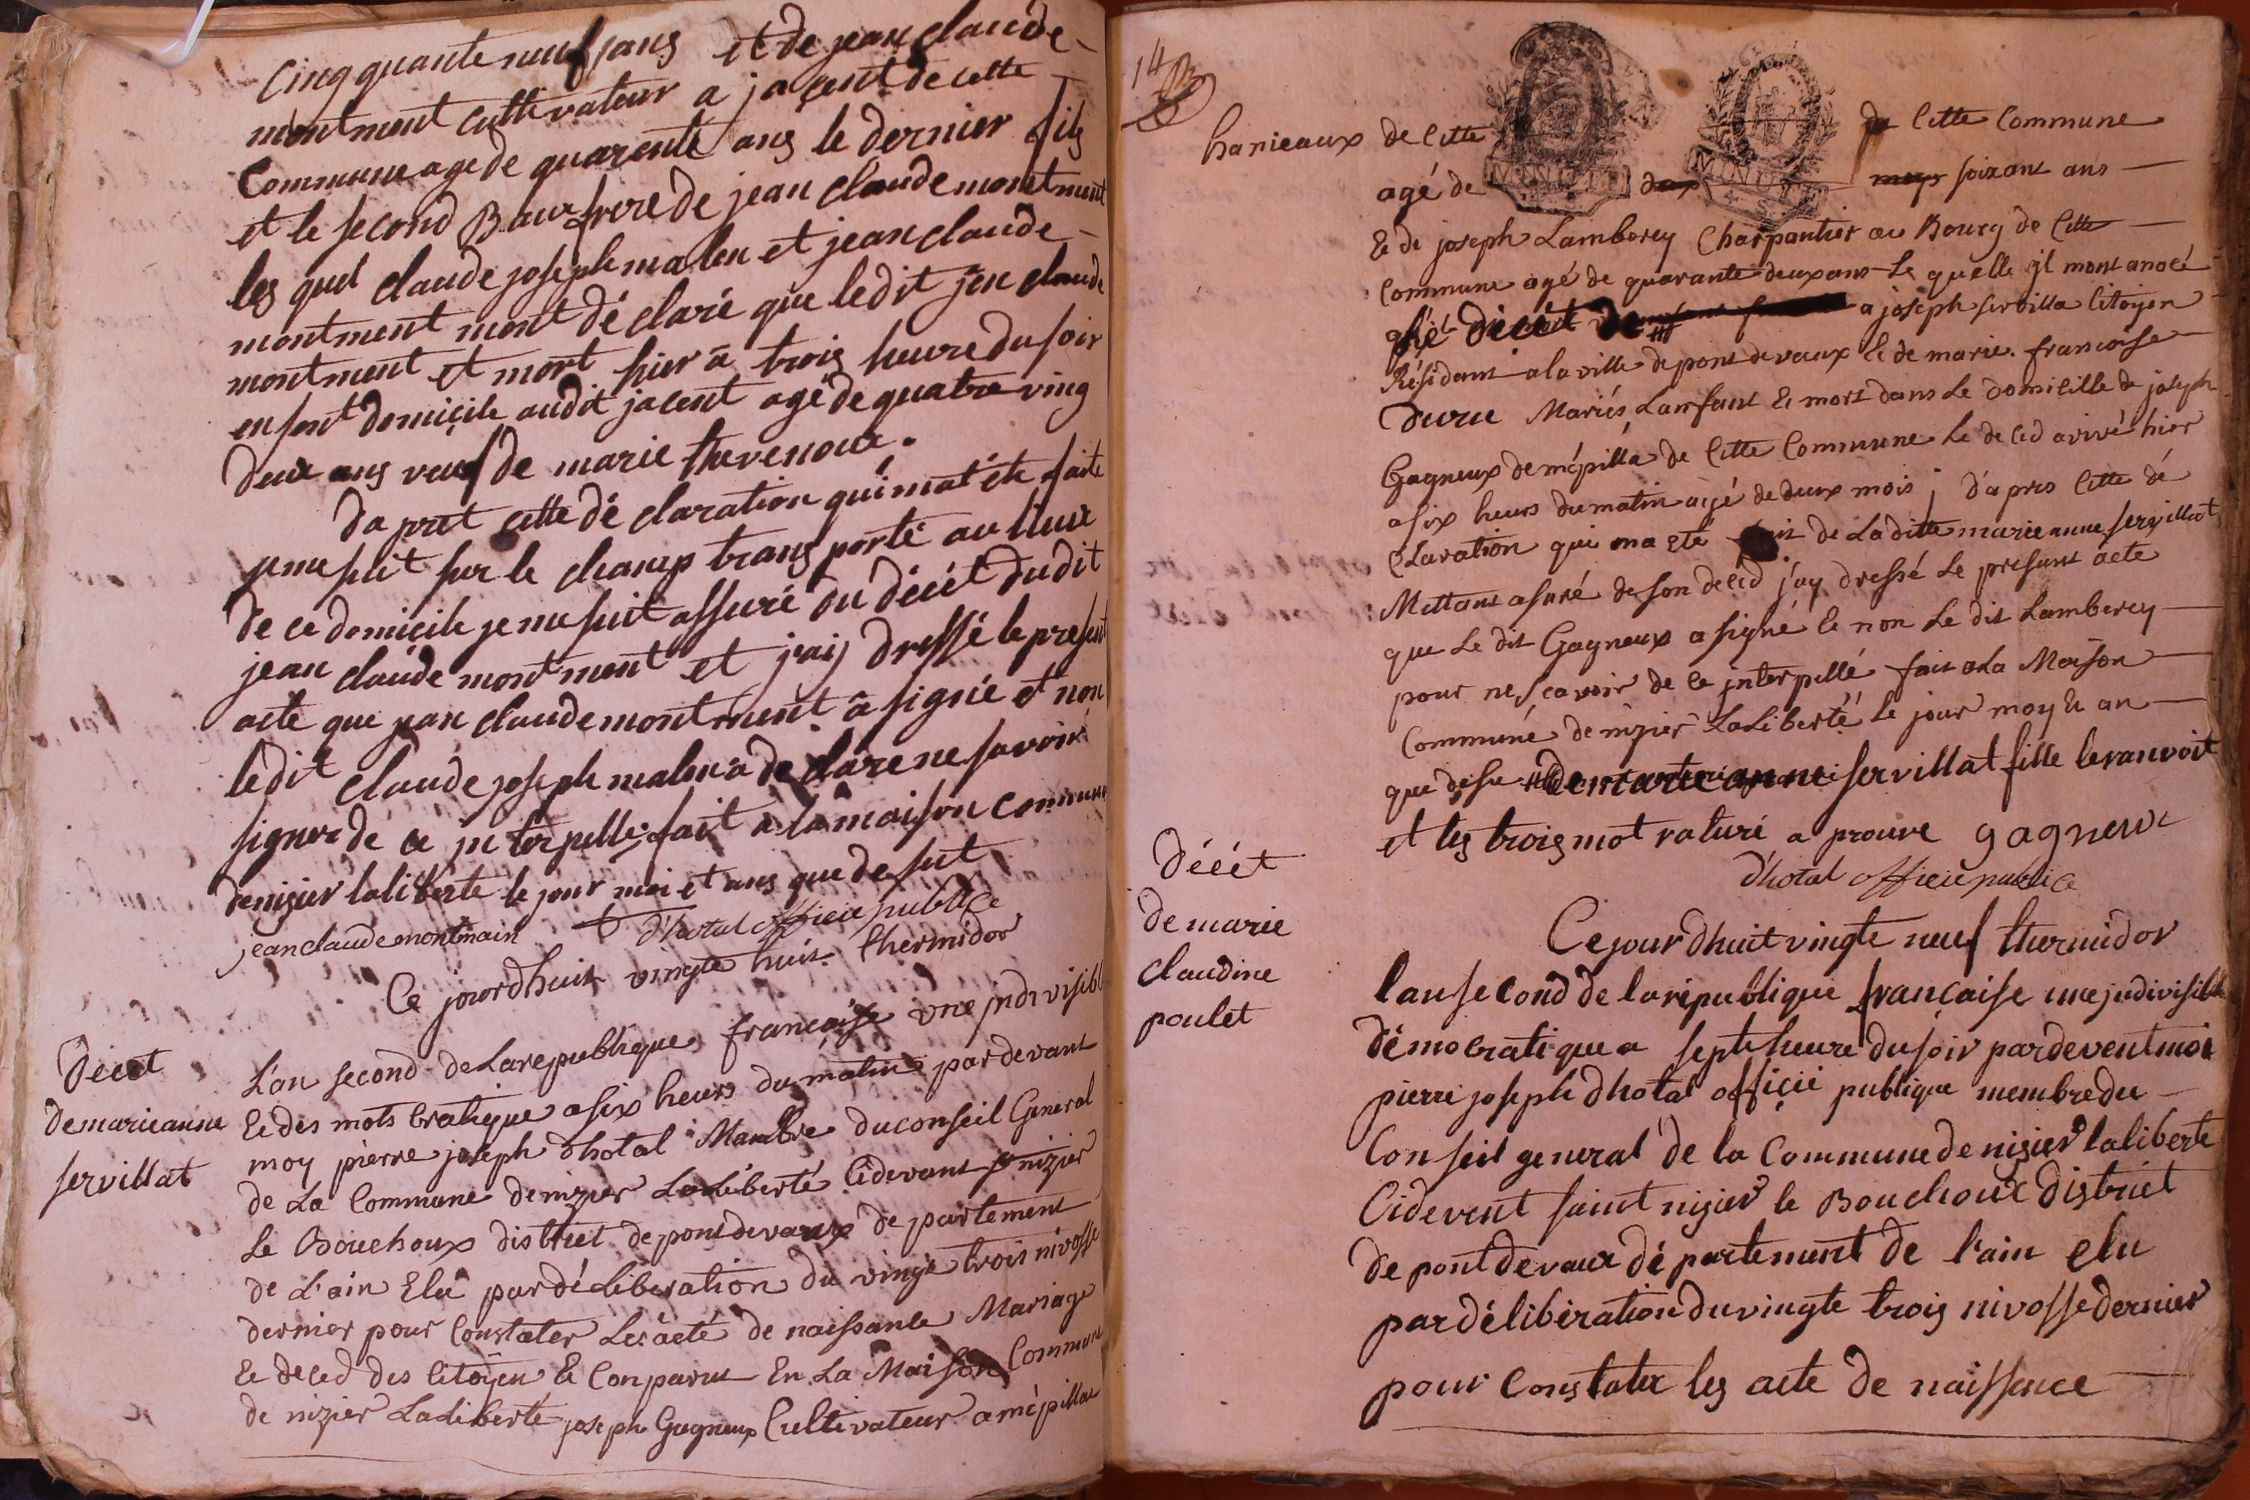 Cinq quante neuf jans et de jean claude
montment cultivateur a jacent de cette
Commune age de quarente ans le dernier fils
et le second Baux frere de jean claude montment
les quel claude joseph malen et jean claude
montment mont dé claré que ledit jen claude
montment et mort hier a trois heure du soir
en sont domicile audit jacent agé de quatre ving
deux ans veuf de marie thevenoux.
Da pret cette dé claration qui mat éte faite
je me suit sur le champ trans porté au lieux
de ce domicile je me suit assuré du décét dudit
jean claude montment et j'aij dressé le present
acte que jean claude montment a signié et non
ledit claude joseph malen a de clare ne savoir
signer dé ce jnterpellé fait a la maison commune
denisier laliberte le jour moi et ans que de sut
jean claude montmain d'hotal officie publice
Ce jourdhuit vingte huit thermidor
Decet
de marie anne
servillat
L'an second de Larepublique francaise une jndivisibl
Et des mots cratique a six heurs du matin pardevant
moy pierre joseph dhotal Mambre du conseil General
de La Commune de nizier La Liberté Cidevant st nizier
Le Bouchoux district de pontdevaux de partement
de L'ain Elu par déLiberation du vingt trois nivosse
dernier pour Constater Les acté de naissance Mariage
Et deced des Citoyen Et Conparut En La Maison Commune
de nizier LaLiberté joseph Gagneux Cultivateur a mépilla
14
hanieaux de Cette de Cette Commune
agé de soixant ans
MINUTE
MINUTE
Et de joseph Lamberey Charpantier au Bourg de Cette
Commune agé de quarante deux ans Le quelle jl mont anocé
décét de a joseph servilla Citoyen
Résidant a la ville de pont de vaux Et de marie francoise
Durie Mariés Lanfant Et mort dans Le domicille de joseph
Gagneux de mépilla de Cette Commune Le deced arivé hier
a six heurs du matin agé de deux mois j d'apres Cette dé
Claration qui ma eté fait de Laditte marie anne servillat
Mettant asuré de son deced j'ay dressé Le presant acte
que Le dit Gagneux a signé Et non Le dit Lamberey
pour ne scavoir de Ce jnterpellé fait a La Maison
Communé de nizier LaLiberté Le jour moy Et an
que desu de marie anne servillat fille levanvoit
et les trois mot raturé a prouve gagneux
d'hotal officie publice
Décét
de marie
claudine
poulet
Ce jour dhuit vingte neuf thermidor
lan second de la république française une jndivisible
démocratique a septe heure du soir pardevent moi
pierre joseph dhotal officié publique membre du
Conseil general de la Commune de nisier laliberte
Cidevent saint nisier le Bouchoux district
de pontdevaux dé partement de l'ain elu
par délibération du vingte trois nivosse dernier
pour Constater les acte de naissence